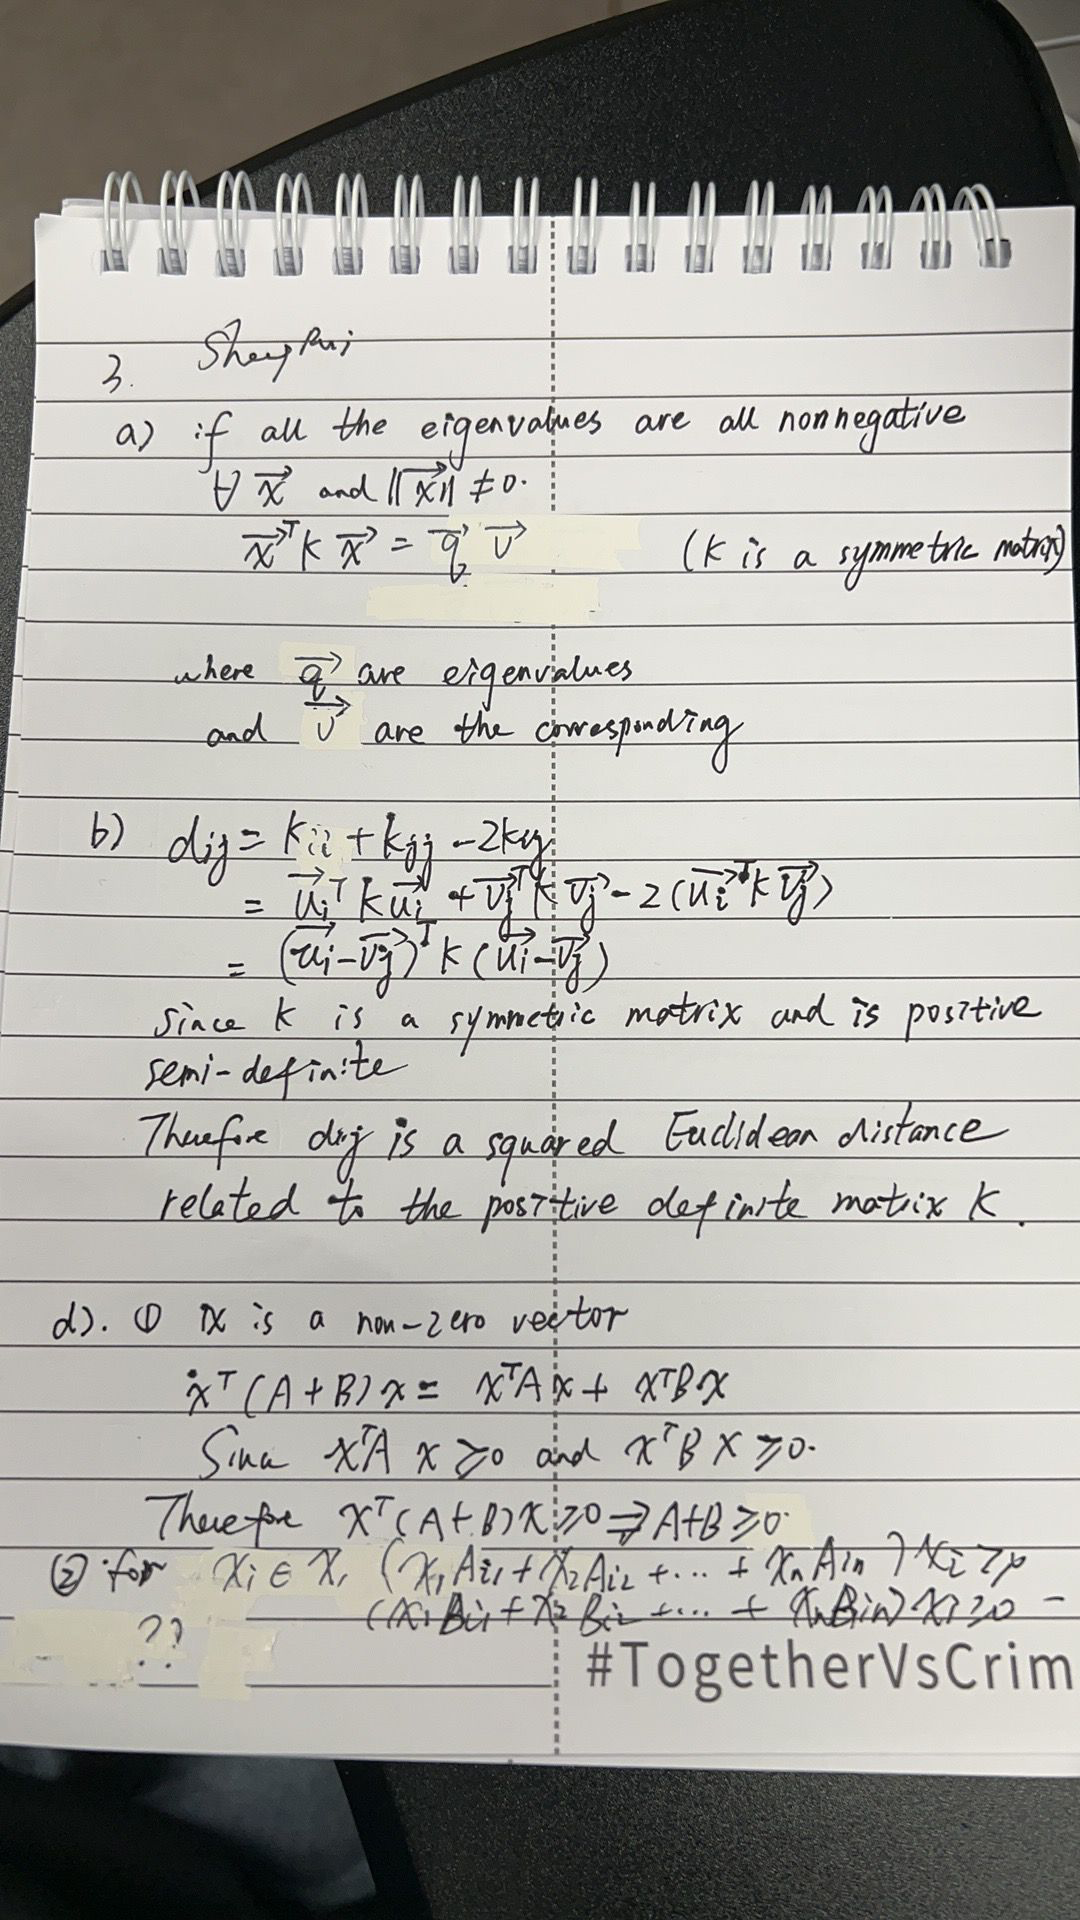 3.
a) if all the eigenvalues are all nonnegative
∀ x⃗ and ||x⃗|| ≠ 0.
x⃗ᵀ K x⃗ = q⃗ v⃗ (K is a symmetric matrix)
where q⃗ are eigenvalues
and v⃗ are the corresponding
b) dij = Kii + Kjj - 2Kij
= u⃗iᵀ K u⃗i + v⃗jᵀ K v⃗j - 2(u⃗iᵀ K v⃗j)
= (u⃗i - v⃗j)ᵀ K (u⃗i - v⃗j)
since K is a symmetric matrix and is positive
semi-definite
Therefore dij is a squared Euclidean distance
related to the positive definite matrix K.
d). ① x is a non-zero vector
xᵀ(A+B)x = xᵀAx + xᵀBx
Since xᵀAx ≥0 and xᵀBx ≥0.
Therefore xᵀ(A+B)x ≥0 ⇒ A+B ≥0.
② for xi ∈ x, (x1Ai1 + x2Ai2 + ... + xnAin) xi ≥0
(x1Bi1 + x2Bi2 + ... + xnBin) xi ≥0
??
#TogetherVsCrim